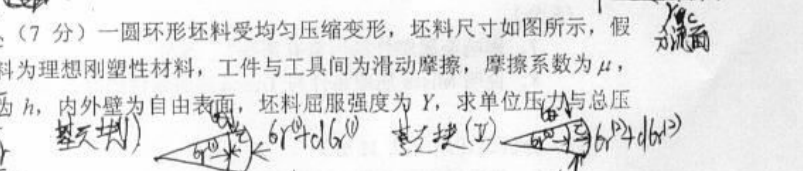 （7 分）一圆环形坯料受均匀压缩变形，坯料尺寸如图所示，假
分流面
料为理想刚塑性材料，工件与工具间为滑动摩擦，摩擦系数为 μ，
为 h，内外壁为自由表面，坯料屈服强度为 Y，求单位压力与总压
基元块(I) σr⁽¹⁾ σr⁽¹⁾+dσr⁽¹⁾ 基元块(II) σr⁽²⁾ σr⁽²⁾+dσr⁽²⁾